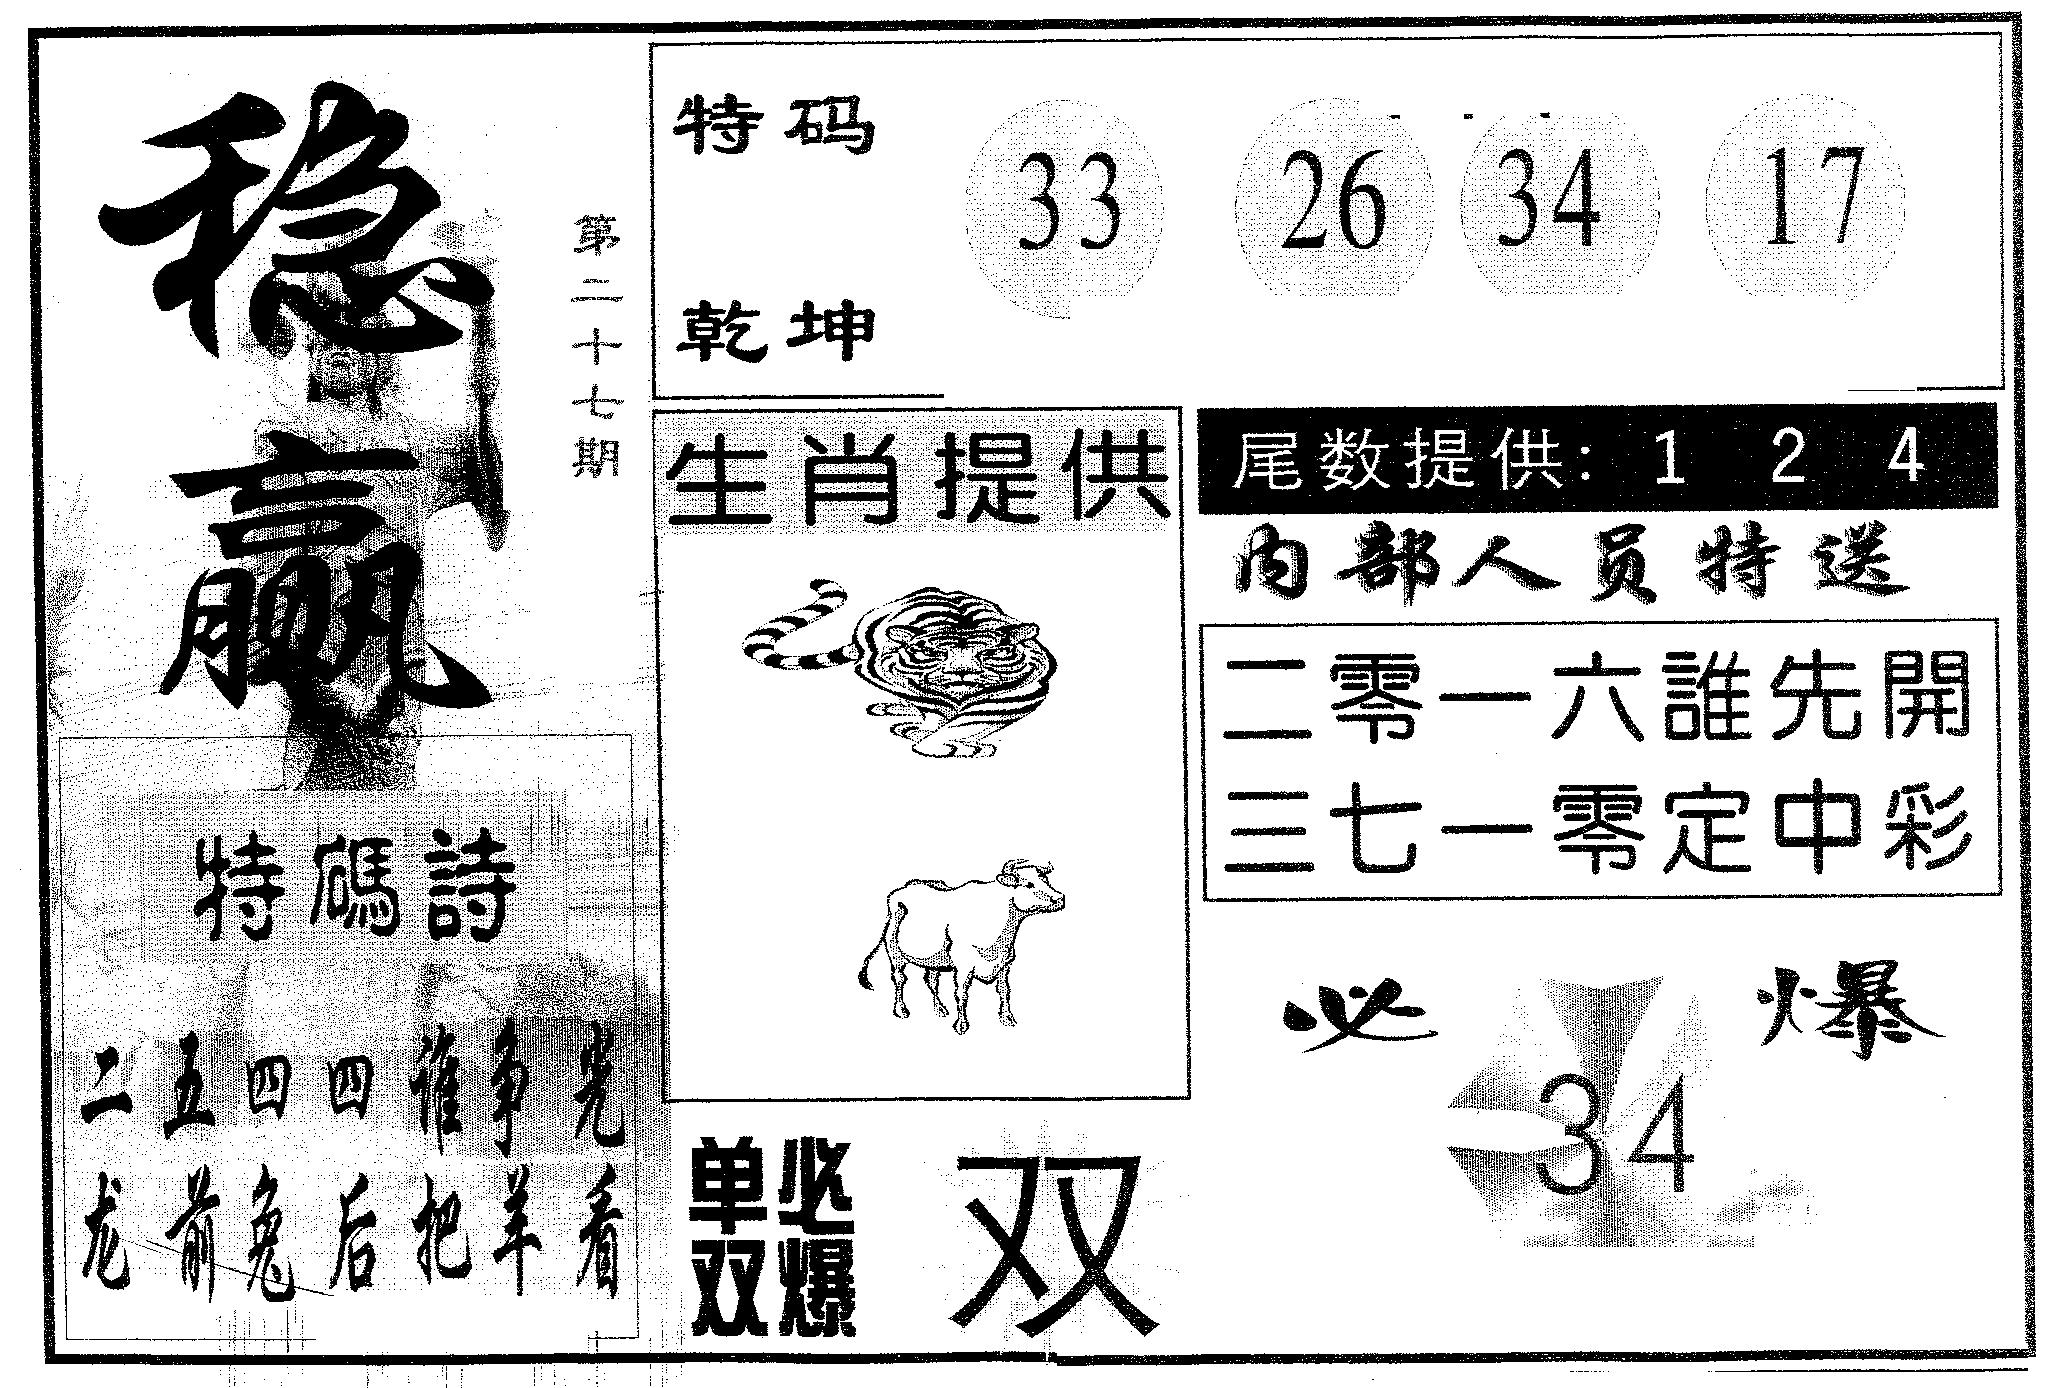 稳赢
第二十七期
特码
乾坤
33 26 34 17
生肖提供
尾数提供: 1 2 4
内部人员特送
二零一六誰先開
三七一零定中彩
必爆
34
特碼詩
二五四四谁争光
龙前兔后把羊看
单双
必爆
双